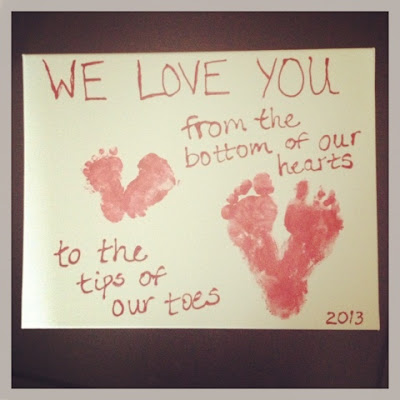 WE LOVE YOU
from the
bottom of our
hearts
to the
tips of
our toes
2013